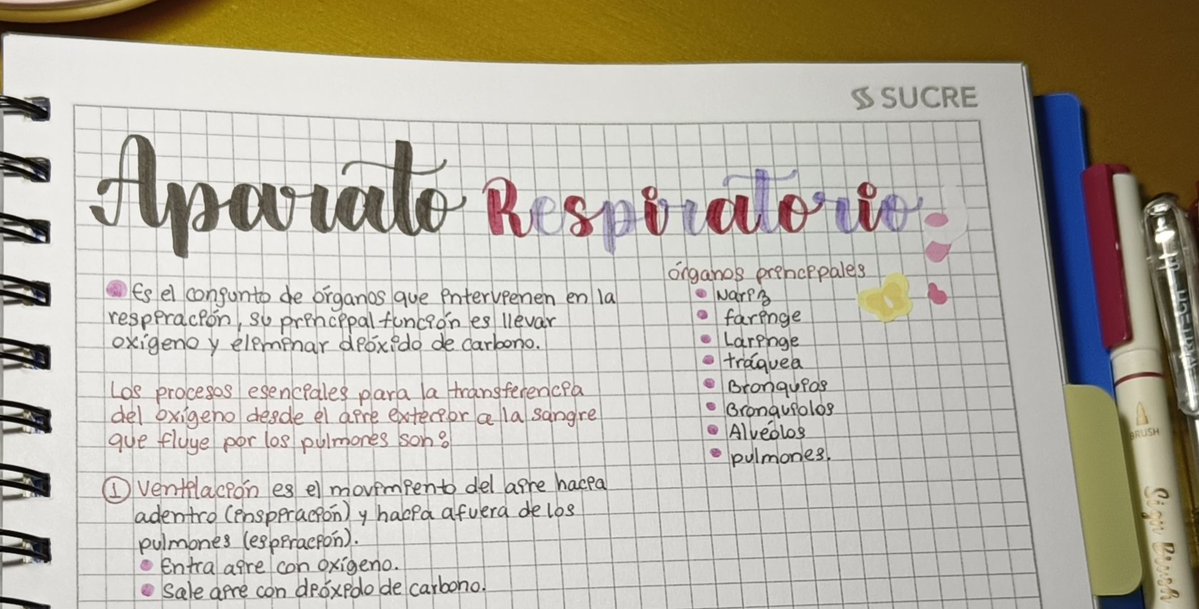 SUCRE
Aparato Respiratorio
Es el congunto de órganos que intervienen en la
respiración, su principal función es llevar
oxígeno y eliminar dióxido de carbono.
Los procesos esenciales para la transferencia
del oxígeno desde el aire exterior a la sangre
que fluye por los pulmones son:
① Ventilación es el movimiento del aire hacia
adentro (inspiración) y hacia afuera de los
pulmones (espiración).
Entra aire con oxígeno.
Sale aire con dióxido de carbono.
órganos principales
Nariz
faringe
Laringe
tráquea
Bronquios
Bronquiolos
Alvéolos
pulmones.
BRUSH
Sign Brush